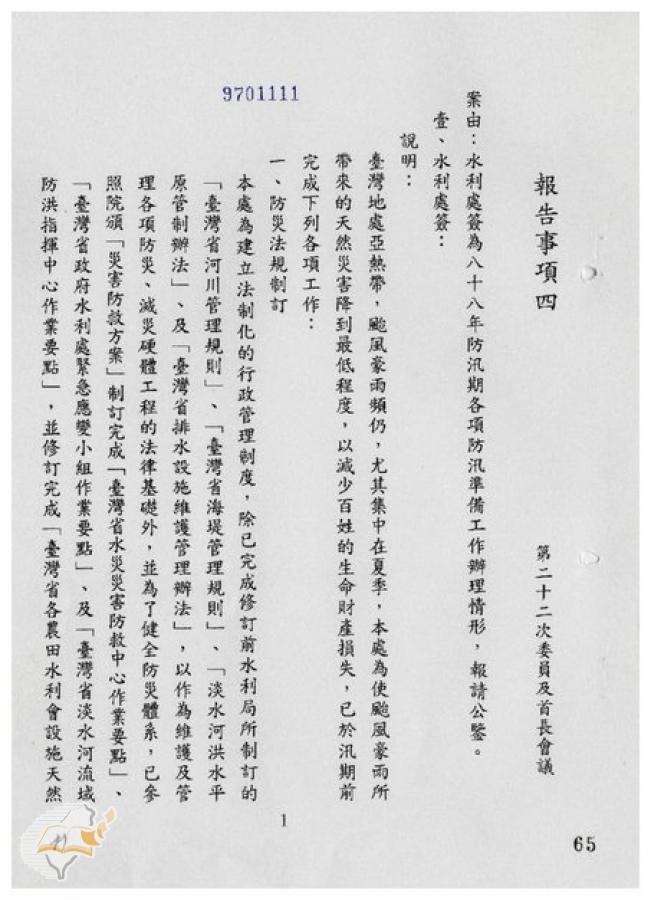 9701111
報告事項四
第二十二次委員及首長會議
案由：水利處簽為八十八年防汛期各項防汛準備工作辦理情形，報請公鑒。
壹、水利處簽：
說明：
臺灣地處亞熱帶，颱風豪雨頻仍，尤其集中在夏季，本處為使颱風豪雨所
帶來的天然災害降到最低程度，以減少百姓的生命財產損失，已於汛期前
完成下列各項工作：
一、防災法規制訂
本處為建立法制化的行政管理制度，除已完成修訂前水利局所制訂的
「臺灣省河川管理規則」、「臺灣省海堤管理規則」、「淡水河洪水平
原管制辦法」、及「臺灣省排水設施維護管理辦法」，以作為維護及管
理各項防災、減災硬體工程的法律基礎外，並為了健全防災體系，已參
照院頒「災害防救方案」制訂完成「臺灣省水災災害防救中心作業要點」、
「臺灣省政府水利處緊急應變小組作業要點」、及「臺灣省淡水河流域
防洪指揮中心作業要點」，並修訂完成「臺灣省各農田水利會設施天然
1
65